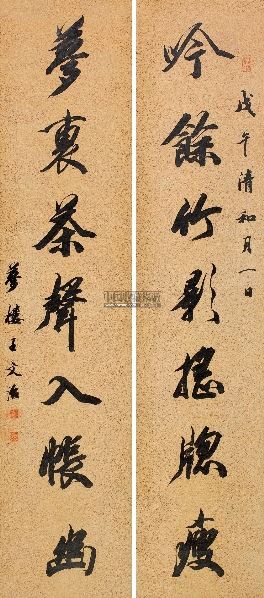 戊午清和月一日
吟餘竹影搖牕瘦
夢裏茶聲入帳幽
夢樓王文治